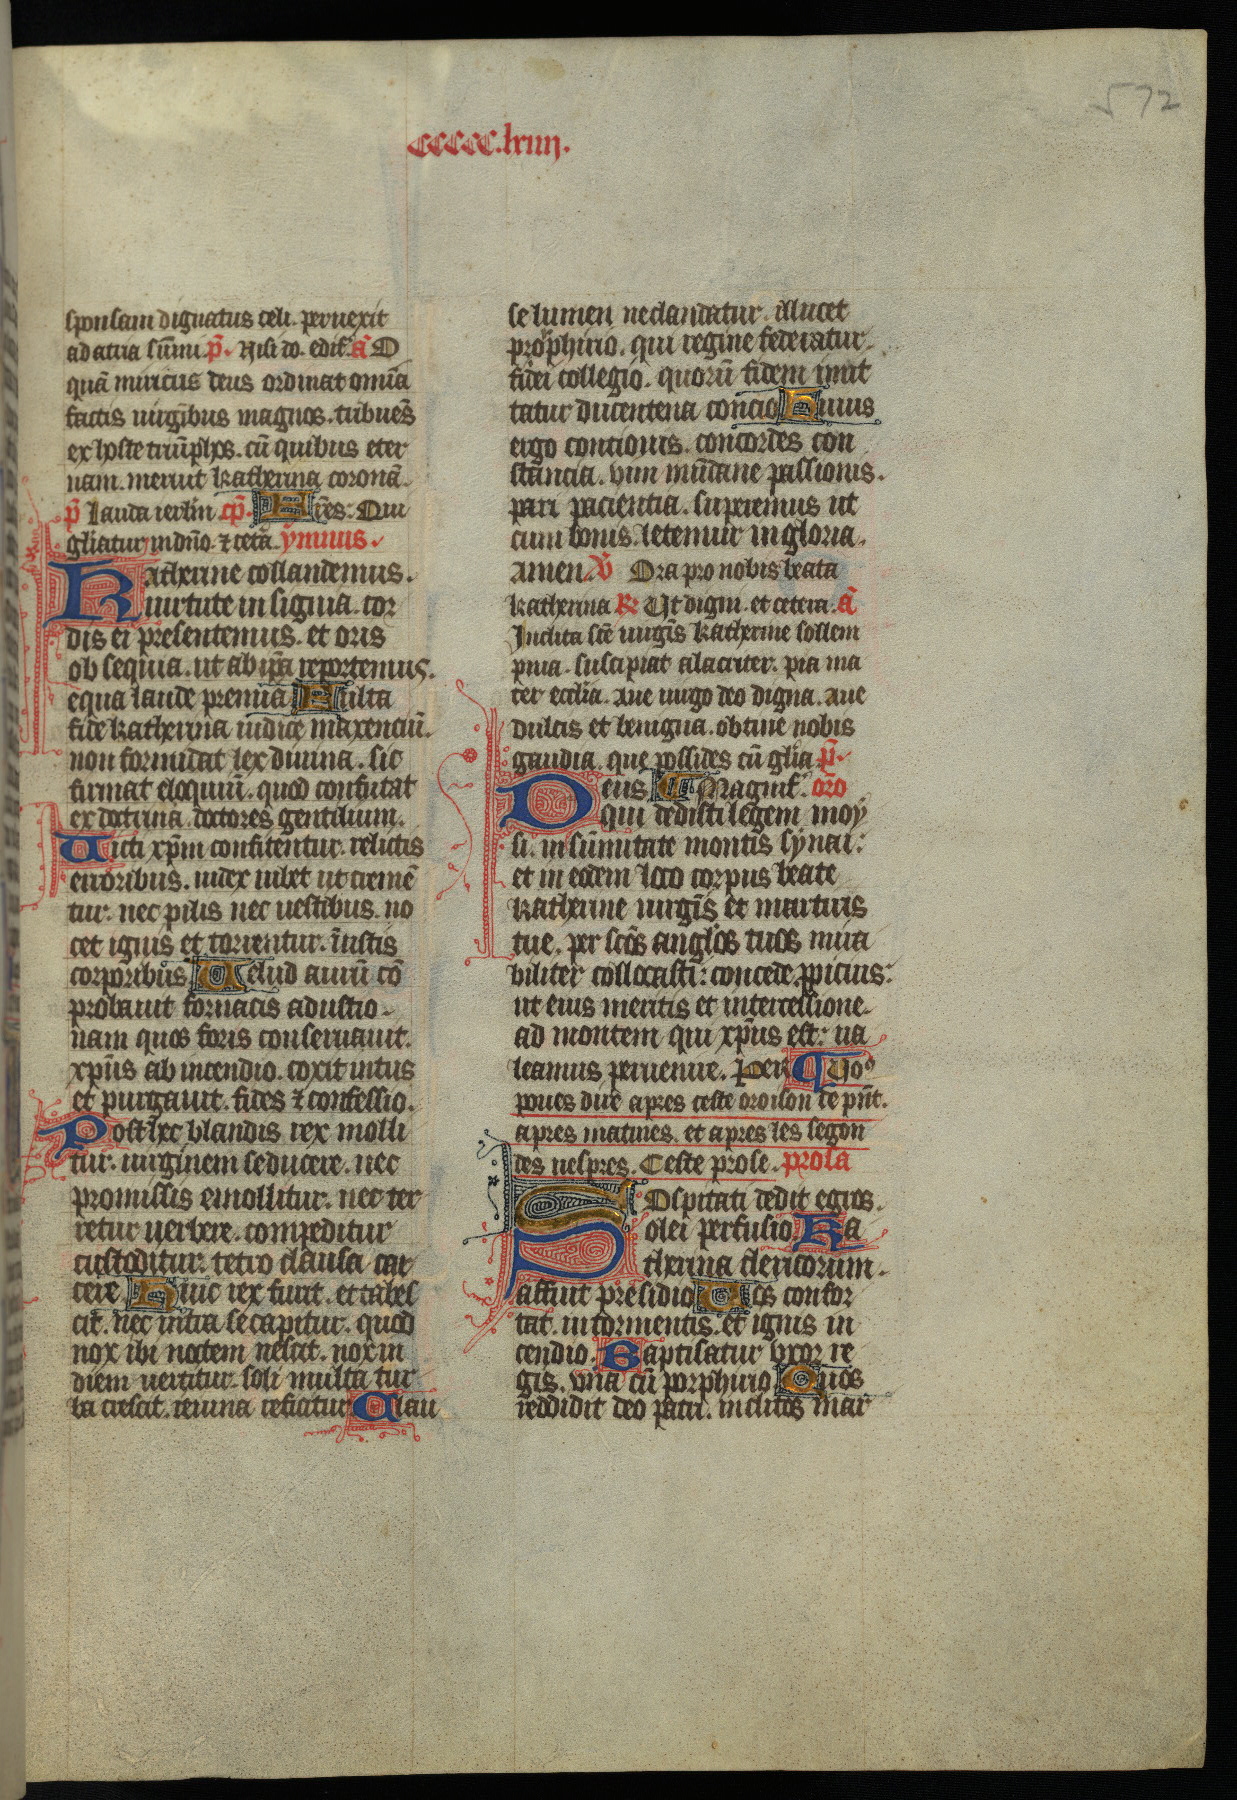 572
CCCCC.lxiiij.
sponsam dignatus celi. peruexit
ad atria sūmi. p̄. Nisi do. edif. ā O
quā miricus deus ordinat omīa
factis uirgībus magnos. tribuēs
ex hoste triūphos. cū quibus eter
nam. meruit katherina coronā.
p̄ lauda ierlm̄ cp̄. Res. Qui
gl̄iatur in dn̄o. ⁊ cetā. ymnus.
Katherine collaudemus.
uirtute insignia. cor
dis ei presentemus. et oris
obsequia. ut ab ip̄a reportemus.
equa laude premia Fulta
fide katherina iudice maxenciū.
non formidat lex diuina. sic
firmat eloquiū. quod confutat
ex doctrina. doctores gentilium.
Uicti xp̄m confitentur. relictis
erroribus. iudex iubet ut cremē
tur. nec pilis nec uestibus. no
cet ignis et torrentur. iustis
corporibus Uelud auruī cō
probauit fornacis adustio.
nam quos foris conseruauit.
xp̄us ab incendio. coxit intus
et purgauit. fides ⁊ confessio.
Post hec blandis rex molli
tur. uirginem seducere. nec
promissis emollitur. nec ter
retur uerbere. compeditur
custoditur. tetro clausa car
cere. Huic rex furit. et tabes
cit. nec intra se capitur. quod
nox ibi noctem nescit. nox in
diem uertitur. soli multa tur
ba crescit. ieiuna reficitur Clau
se lumen ne claudatur. illucet
prophirio. qui regine federatur.
fidei collegio. quorū fidem imit
tatur ducentena concio Huius
ergo contionis. concordes con
stancia. vim mūdane passionis.
pari paciencia. superemus ut
cum bonis. letemur in gloria.
amen. v̄ Ora pro nobis beata
katherina R Ut digni. et cetera. ā
Inclita scē uirgīs katherine sollem
pnia. suscipiat alacriter. pia ma
ter ecclīa. aue uirgo deo digna. aue
dulcis et benigna. obtine nobis
gaudia. que possides cū glīa. p̄.
Magnif. oro
Deus
qui dedisti legem moy
si. in sūmitate montis synai:
et in eodem loco corpus beate
katherine uirgīs et martiris
tue. per scōs anglos tuos mira
biliter collocasti: concede ppicius:
ut eius meritis et intercessione.
ad montem qui xp̄us est: ua
leamus peruenire. Per Uoꝰ
poues dire apres ceste oroison ce pn̄t.
apres matines. et apres les segon
des uespres. Ceste prose. prosa
Sospitati dedit egros.
olei perfusio. Ka
therina clericorum.
affuit presidio Uos confor
tat. in tormentis. et ignis in
cendio. Baptisatur vxor re
gis. vna cū porphirio Quos
reddidit deo patri. inclitos mar